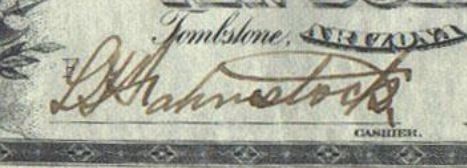 Tombstone, ARIZONA
L F Fahnestock
CASHIER.